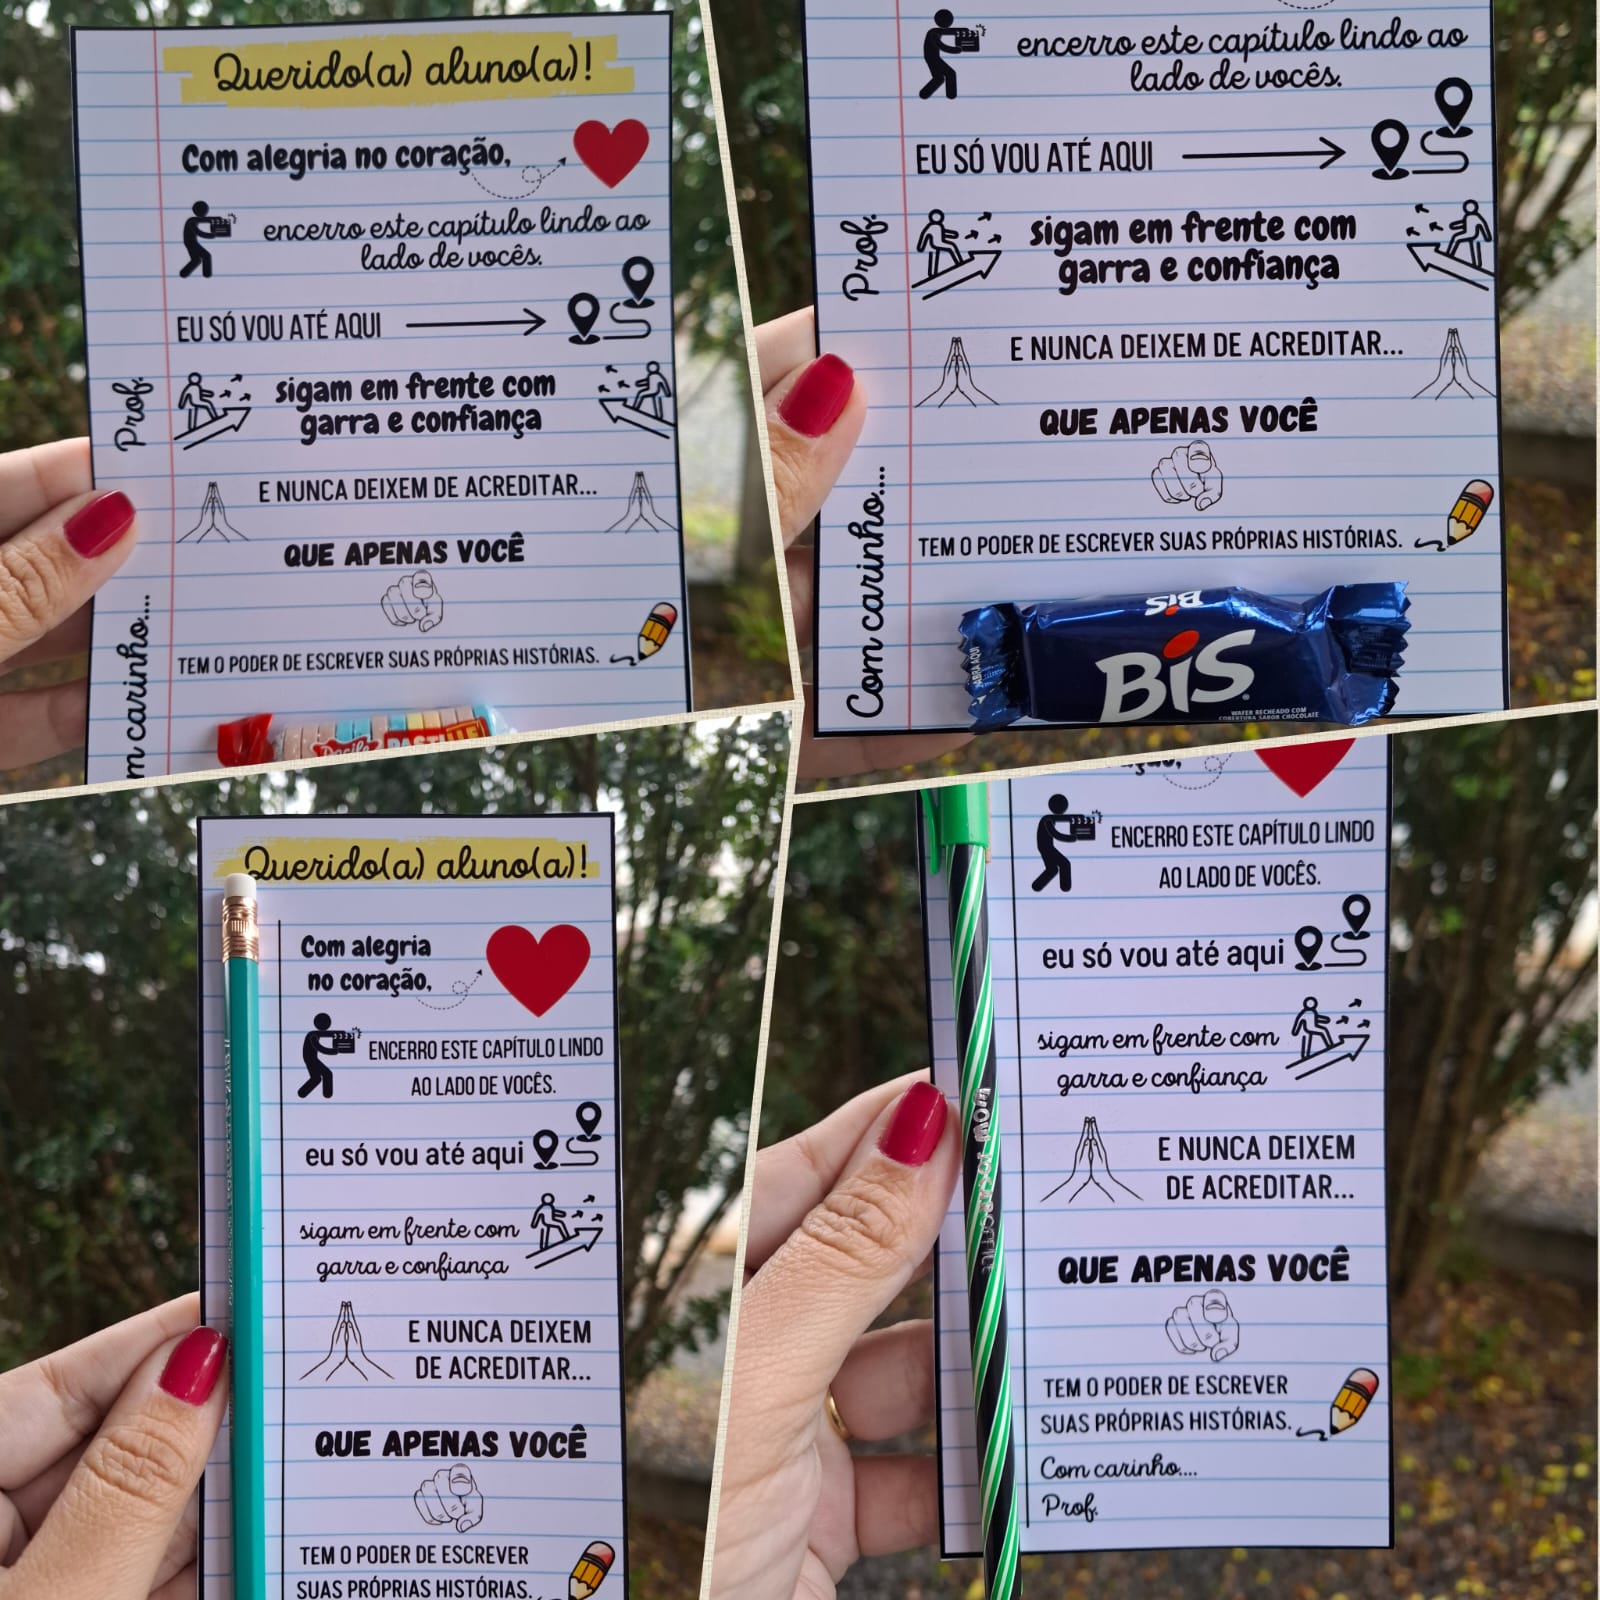 Querido(a) aluno(a)!
Com alegria no coração,
encerro este capítulo lindo ao
lado de vocês.
EU SÓ VOU ATÉ AQUI
sigam em frente com
garra e confiança
E NUNCA DEIXEM DE ACREDITAR...
QUE APENAS VOCÊ
TEM O PODER DE ESCREVER SUAS PRÓPRIAS HISTÓRIAS.
Prof.
m carinho....
encerro este capítulo lindo ao
lado de vocês.
EU SÓ VOU ATÉ AQUI
sigam em frente com
garra e confiança
E NUNCA DEIXEM DE ACREDITAR...
QUE APENAS VOCÊ
TEM O PODER DE ESCREVER SUAS PRÓPRIAS HISTÓRIAS.
Prof.
Com carinho....
BIS
BIS
WAFER RECHEADO COM
COBERTURA SABOR CHOCOLATE
Querido(a) aluno(a)!
Com alegria
no coração,
ENCERRO ESTE CAPÍTULO LINDO
AO LADO DE VOCÊS.
eu só vou até aqui
sigam em frente com
garra e confiança
E NUNCA DEIXEM
DE ACREDITAR...
QUE APENAS VOCÊ
TEM O PODER DE ESCREVER
SUAS PRÓPRIAS HISTÓRIAS.
ENCERRO ESTE CAPÍTULO LINDO
AO LADO DE VOCÊS.
eu só vou até aqui
sigam em frente com
garra e confiança
E NUNCA DEIXEM
DE ACREDITAR...
QUE APENAS VOCÊ
TEM O PODER DE ESCREVER
SUAS PRÓPRIAS HISTÓRIAS.
Com carinho....
Prof.